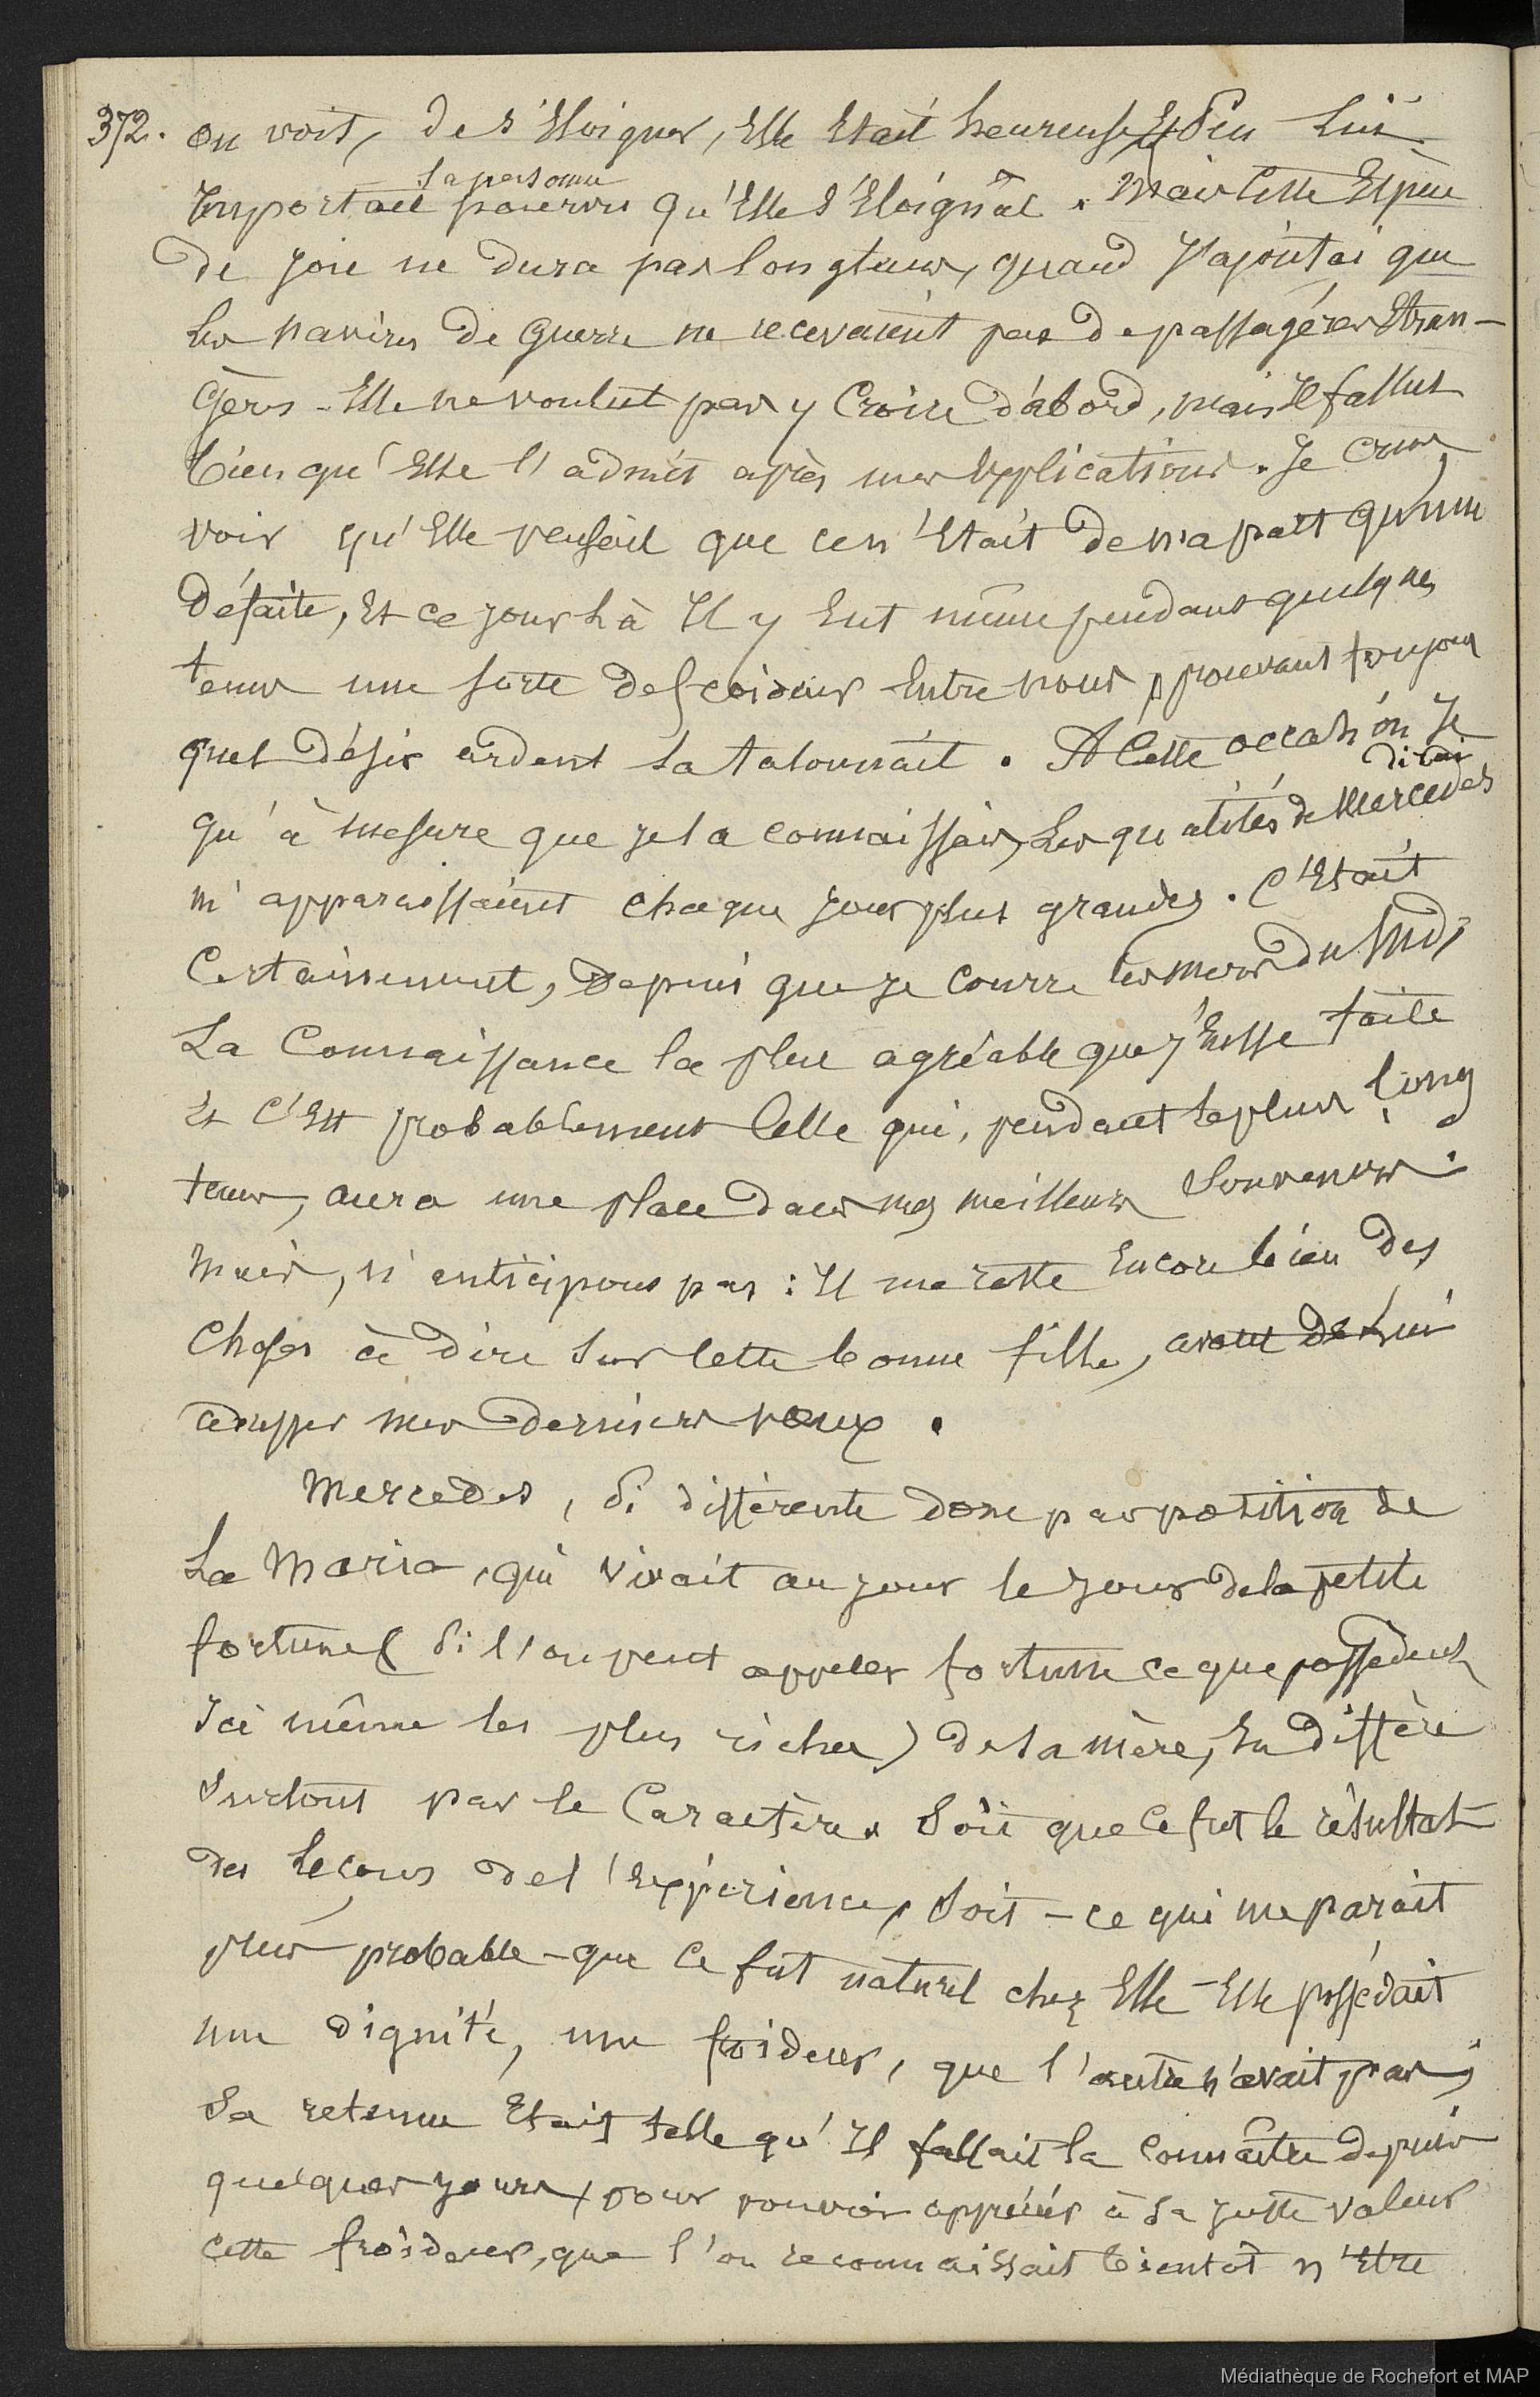 372. on voit, de s'Eloigner, Elle Etait heureuse Et peu lui
la personne
Importait pourvu qu'Elle s'Eloignât. Mais cette Espèce
de joie ne dura pas longtems, quand J'ajoutai que
les navires de guerre ne recevaient pas de passagères Etran-
gères. Elle ne voulut pas y Croire d'abord, mais Il fallut
bien qu'Elle l'admit après mes Explications. Je crus
voir qu'Elle pensait que ce n'Etait de ma part qu'une
Défaite, Et ce jour là Il y Eut même pendant quelques
tems une sorte de froideur Entre nous prouvant toujours
quel désir ardent la talonnait. A Cette occasion Je
dirai
qu'à mesure que je la connaissais, les qualités de Mercedes
m'apparaissaient chaque jour plus grandes. C'Etait
Certainement, Depuis que je Courre les mers du Sud,
La Connaissance la plus agréable que j'Eusse faite
Et C'Est probablement Celle qui, pendant le plus long
tems, aura une place dans mes meilleurs Souvenirs.
Mais, n'anticipons pas : Il me reste Encore bien des
Choses à dire sur cette bonne fille, avant de lui
adresser mes derniers vœux.
Mercedes, si différente donc par position de
La Maria, qui vivait au jour le jour de la petite
fortune (si l'on peut appeler fortune ce que possèdent
Ici même les plus riches) de sa mère, En diffère
Surtout par le Caractère. Soit que ce fut le résultat
des leçons de l'Expérience, soit - ce qui me parait
plus probable - que ce fut naturel chez Elle - Elle possédait
une dignité, une froideur, que l'autre n'avait pas ;
Sa retenue Etait telle qu'Il fallait la connaître depuis
quelques jours, pour pouvoir apprécier à sa juste valeur
cette froideur, que l'on reconnaissait bientôt n'Etre
Médiathèque de Rochefort et MAP